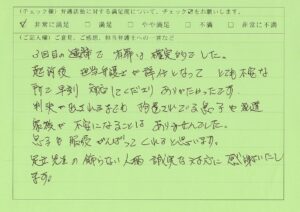 (チェック欄) 弁護活動に対する満足度について、チェック☑をお願いします。
☑ 非常に満足 □ 満足 □ やや満足 □ 不満 □ 非常に不満
(ご記入欄) ご意見、ご感想、担当弁護士への一言など
3回目の逮捕で 有罪は確定的でした。
起訴前 担当弁護士が親身になって とても不安な
時に早期 対応してくださり ありがたかったです。
判決が出されるまでも 拘留されている息子も
家族が不安になることはありませんでした。
息子も服役がんばってくれると思います。
先生の飾らない人柄 誠実な対応に感謝いたし
ます。